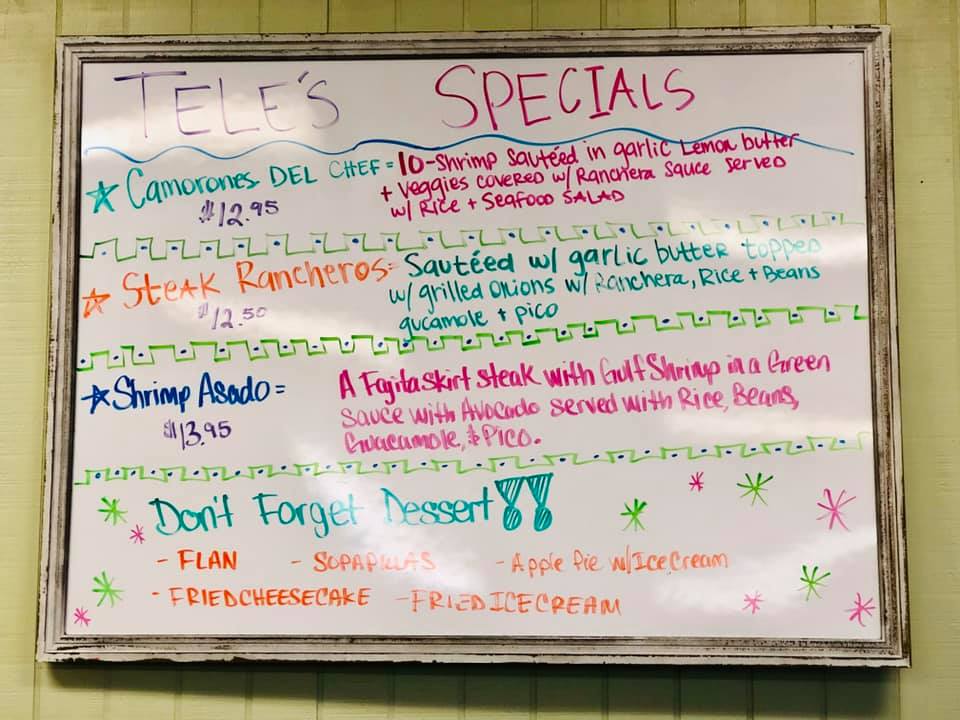 TELE'S SPECIALS
Camorones DEL CHEF = 10-Shrimp Sautéed in garlic Lemon butter
+ Veggies covered w/ Ranchera Sauce served
$12.95
w/ Rice + Seafood SALAD
Steak Rancheros= Sautéed w/ garlic butter topped
w/ grilled onions w/ Ranchera, Rice + Beans
$12.50
gucamole + pico
Shrimp Asado = A Fajita skirt steak with Gulf Shrimp in a Green
Sauce with Avocado served with Rice, Beans,
$13.95
Guacamole, & Pico.
Don't Forget Dessert!!
- FLAN - SOPAPILLAS - Apple Pie w/ Ice Cream
- FRIED CHEESECAKE - FRIED ICE CREAM